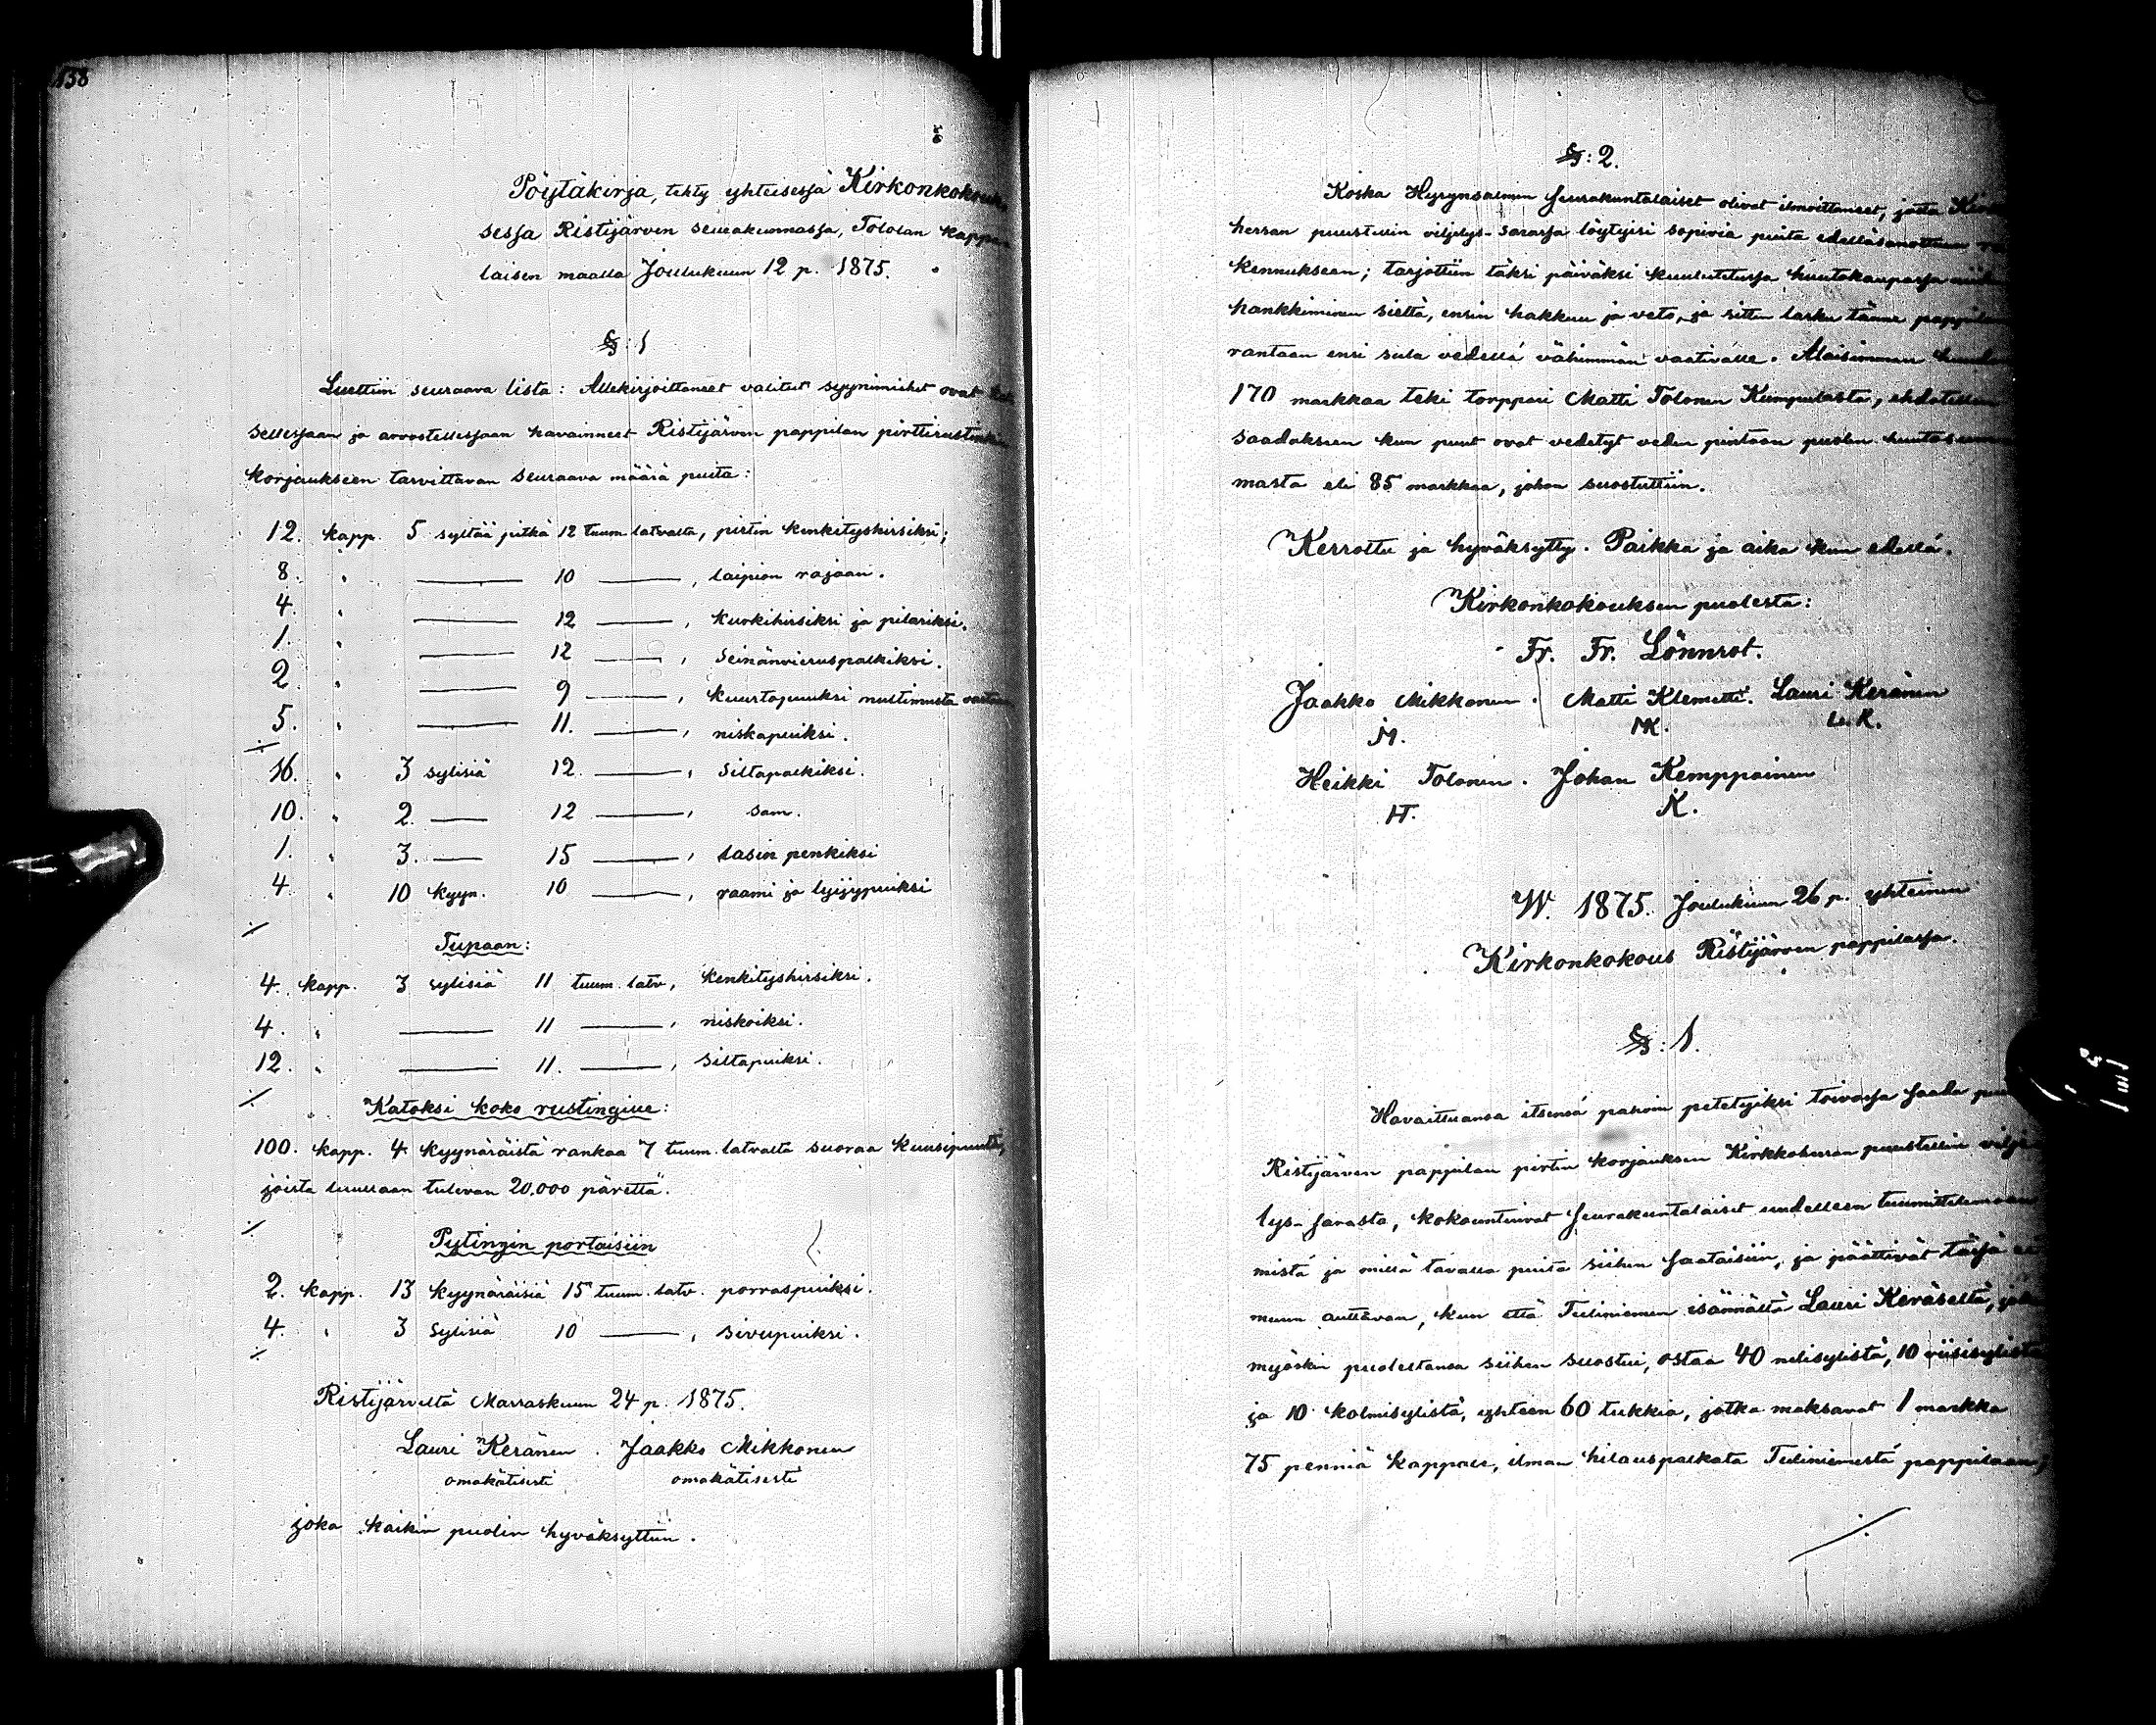 138
Pöytäkirja, tehty yhteisessä Kirkonkokouk-
sessa Ristijärven seurakunnassa, Tololan kappa-
laisen maalla Joulukuun 12 p. 1875.
§: 1
Luettiin seuraava lista: Allekirjoittaneet valitut syynimiehet ovat
sellessaan ja arvostellessaan havainneet Ristijärven pappilan pirttirustinkin
korjaukseen tarvittavan seuraava määrä puita:
12. kapp. 5 syltää pitkä 12 tuum. latvalta, pirtin kenkityshirsiksi;
8. " ——— 10 ———, laipion rajaan.
4. " ——— 12 ———, kurkihirsiksi ja pilariksi.
1. " ——— 12 ———, seinänvieruspalkiksi.
2. " ——— 9 ———, kuurtopuuksi multimusta vastaan
5. " ——— 11. ———, niskapuiksi.
⁒
16. " 3 sylisiä 12. ———, siltapalkiksi.
10. " 2. —— 12 ———, sam.
1. " 3. —— 15 ———, lasin penkiksi
4. " 10 kyyn. 10 ———, raami ja lyijypuiksi
⁒
Tupaan:
4. kapp. 3 sylisiä 11 tuum. latv, kenkityshirsiksi.
4. " ——— 11 ———, niskoiksi.
12. " ——— 11. ———, siltapuiksi.
⁒
Katoksi koko rustingille:
100. kapp. 4 kyynäräistä rankaa 7 tuum. latvalta suoraa kuusipuuta,
joista luullaan tulevan 20,000 pärettä.
⁒
Pytingin portaisiin
2. kapp. 13 kyynäräisiä 15 tuum. latv. porraspuiksi.
4. " 3 sylisiä 10 ———, sivupuiksi.
⁒
Ristijärveltä Marraskuun 24 p. 1875.
Lauri Keränen. Jaakko Mikkonen
omakätisesti omakätisesti
joka kaikin puolin hyväksyttiin.
§: 2.
Koska Hyrynsalmen seurakuntalaiset olivat ilmoittaneet, josta
herran puustellin viljelys-sarassa löytyisi sopivia puita edelläsanottuun
kennukseen; tarjottiin täksi päiväksi kuulutetussa huutokaupassa
hankkiminen sieltä, ensin hakkuu ja veto, ja sitten lasku tänne pappilan
rantaan ensi sula vedellä vähimmän vaativalle. Alaisimman
170 markkaa teki torppari Matti Tolonen Kumpulasta, ehdotellen
saadaksen kun puut ovat vedetyt veden pintaan puolen huutosum-
masta eli 85 markkaa, johon suostuttiin.
Kerrottu ja hyväksytty. Paikka ja aika kun edellä.
Kirkonkokouksen puolesta:
Fr. Fr. Lönnrot.
Jaakko Mikkonen. Matti Klemetti. Lauri Keränen
M. MK. L. K.
Heikki Tolonen. Johan Kemppainen
H. K.
W. 1875. Joulukuun 26 p. yhteinen
Kirkonkokous Ristijärven pappilassa.
§: 1.
Havaittuansa itsensä pahoin petetyiksi toivossa saada
Ristijärven pappilan pirtin korjauksen Kirkkoherran puustellin vilje-
lys-sarasta, kokountuivat seurakuntalaiset uudelleen tuumittelemaan
mistä ja millä tavalla puita siihen saataisiin, ja päättivät tässä ei
muun auttavan, kun että Tuliniemen isännältä Lauri Keräseltä, joka
myöskin puolestansa siihen suostui, ostaa 40 nelisylistä, 10 viisisylistä
ja 10 kolmisylistä, yhteen 60 tukkia, jotka maksavat 1 markka
75 penniä kappale, ilman hilauspalkata Tuliniemestä pappilaan,
⁒